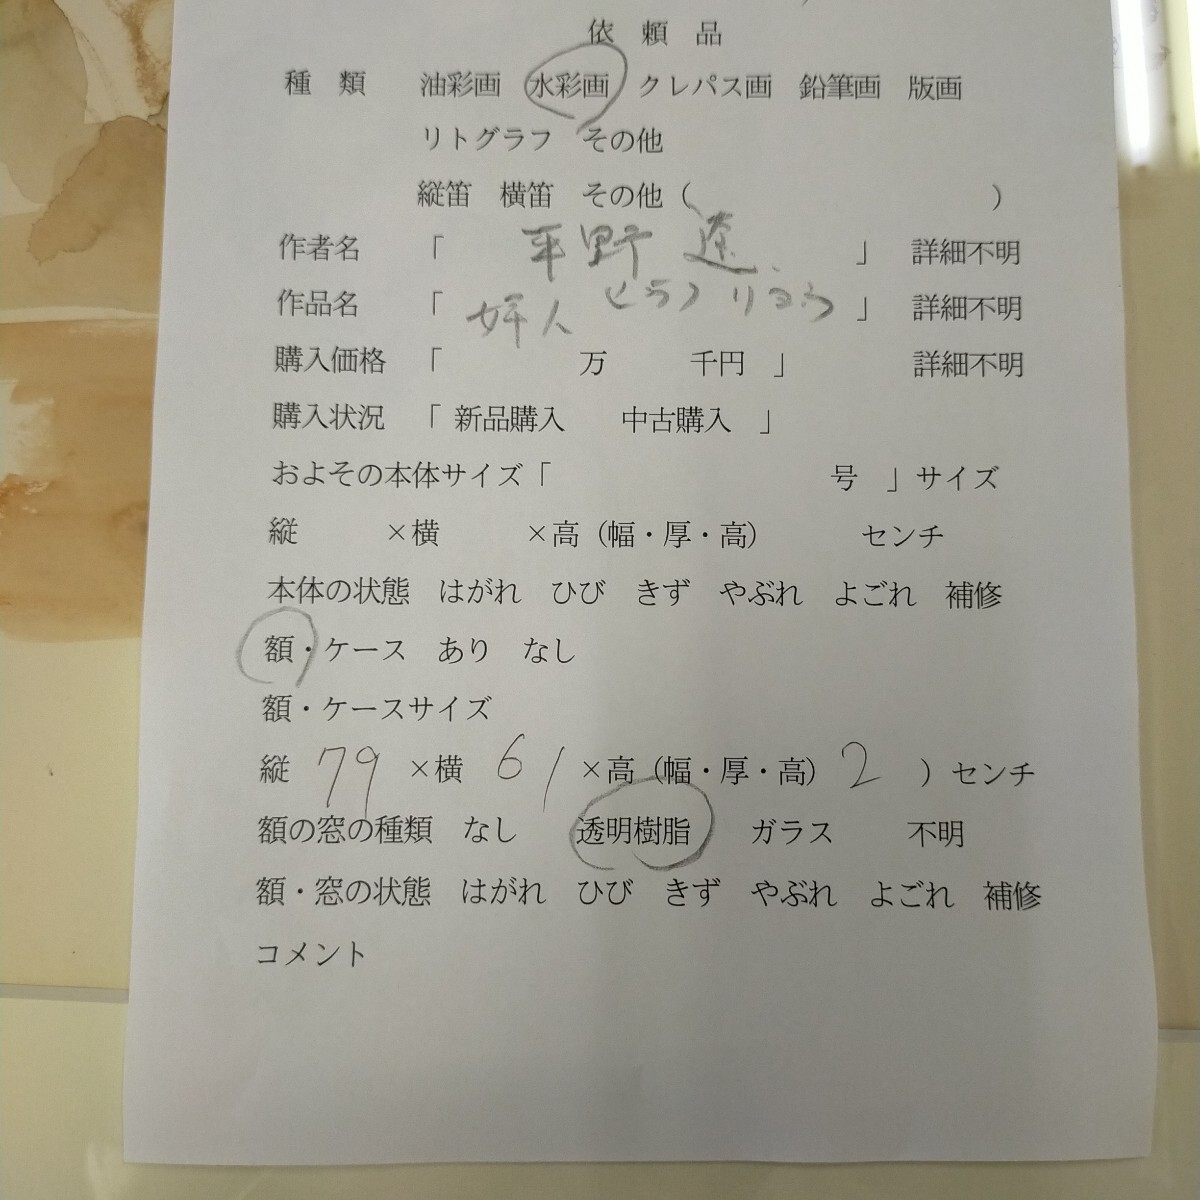 依頼品
種類 油彩画 水彩画 クレパス画 鉛筆画 版画
リトグラフ その他
縦笛 横笛 その他( )
作者名 「 平野遼 」 詳細不明
ひらの りよう
作品名 「 婦人 」 詳細不明
購入価格 「 万 千円 」 詳細不明
購入状況 「 新品購入 中古購入 」
およその本体サイズ「 号 」サイズ
縦 ×横 ×高(幅・厚・高) センチ
本体の状態 はがれ ひび きず やぶれ よごれ 補修
額・ケース あり なし
額・ケースサイズ
縦 79 ×横 61 ×高(幅・厚・高) 2 )センチ
額の窓の種類 なし 透明樹脂 ガラス 不明
額・窓の状態 はがれ ひび きず やぶれ よごれ 補修
コメント